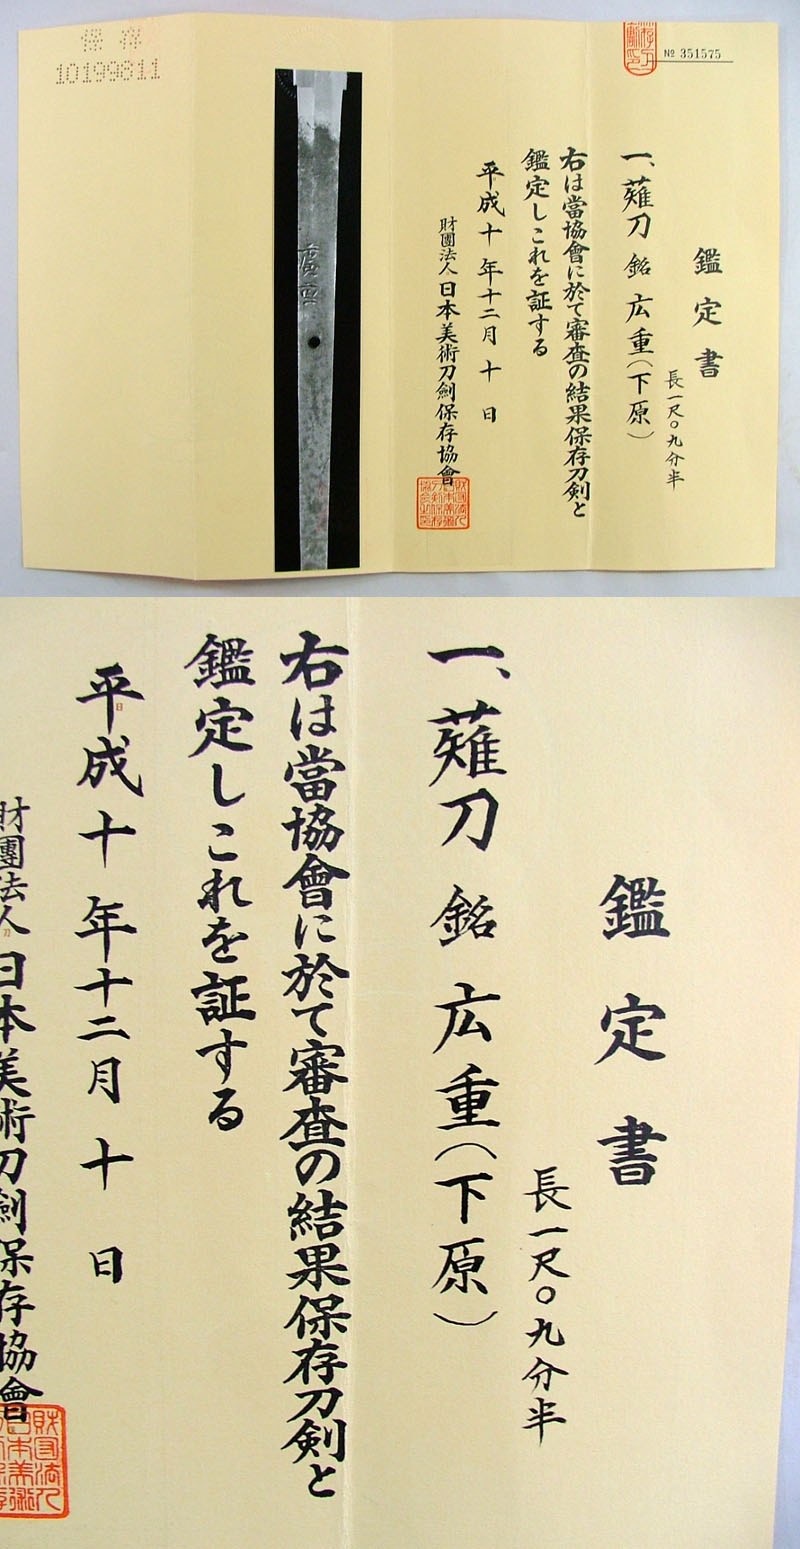 保存
10199811
№ 351575
鑑定書
長一尺〇九分半
一、薙刀 銘 広重(下原)
右は當協會に於て審査の結果保存刀剣と
鑑定しこれを証する
平成十年十二月十日
財團法人日本美術刀劍保存協會
鑑定書
長一尺〇九分半
一、薙刀 銘 広重(下原)
右は當協會に於て審査の結果保存刀剣と
鑑定しこれを証する
平成十年十二月十日
財團法人日本美術刀劍保存協會